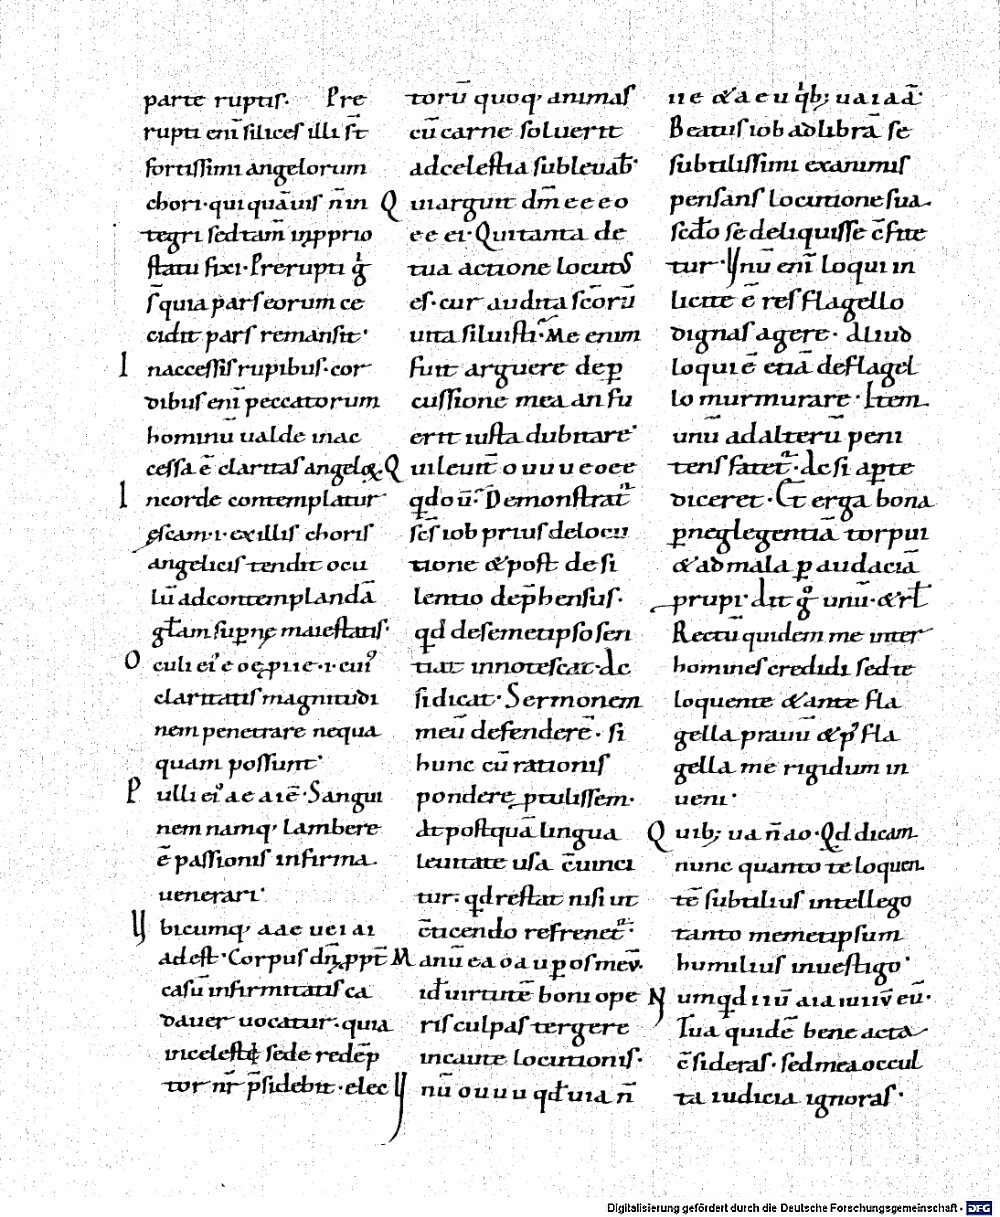 parte ruptis. Pre
rupti eni̅ silices illi st̅
fortissimi angelorum
chori. qui quāuis n̅ in
tegri sed tam̅ in ꝓprio
statu fixi. Prerupti gͥ
s̅ quia pars eorum ce
cidit pars remansit.
I naccessis rupibus. cor
dibus eni̅ peccatorum
hominū ualde inac
cessa ē claritas angeloꝝ.
I ncorde contemplatur
escam .i. ex illis choris
angelicis tendit ocu
lū ad contemplandā
gł̅am supernę maiestatis.
O culi ei᾽
claritatis magnitudi
nem penetrare nequa
quam possunt.
P ulli ei᾽ ae a iē. Sangui
nem namq; lambere
ē passionis infirma
uenerari.
U bicumq; a ae uei ai
adest. Corpus dn̅i ꝓpt̅
casū infirmitatis ca
dauer uocatur. quia
in celesti sede redēp
tor nr̅ p̅sidebit. elec
torū quoq; animas
cū carne soluerit
ad celestia subleuab̅.
Q ui arguit dm̅ e e e o
e e ei. Qui tanta de
tua actione locut᾽
es. cur audita sc̅orū
uita siluisti. Me enim
sunt arguere de ꝑ
cussione mea an fu
erit iusta dubitare.
Q ui leuit̅ o u u u e o e e
qd̅ o ū. Demonstrat̅
sc̅s iob prius de locu
tione & post de si
lentio dep̅hensus.
qd̅ de semetipso sen
tiat innotescat. de
si dicat. Sermonem
meū defenderē. si
hunc cū rationis
pondere ptulissem.
At postquā lingua
leuitate usa c̅uinci
tur. qd̅ restat nisi ut
c̅ticendo refrenet̅.
M anū ea o a u ꝑ os meū.
id̅ uirtutē boni ope
ris culpas tergere
incaute locutionis.
U nū o u u u qd̅ uia n̅
ii e & a e u qͥb; u a i a a̅.
Beatus iob ad librā se
subtilissimi examinis
pensans locutione sua
se d̅o se deliquisse c̅fite
tur. Unū eni̅ loqui in
licite ē res flagello
dignas agere. Aliud
loqui ē etiā de flagel
lo murmurare. Item
unū ad alterū peni
tens fatet̅. ac si aꝑte
diceret. Et erga bona
ꝑ neglegentiā torpui
& ad mala ꝑ audaciā
prupi. dit gͦ unū. & rł̅
Rectū quidem me inter
homines credidi sed te
loquente & ante fla
gella prauū & p᾽ fla
gella me rigidum in
ueni.
Q uib; ua n̅ a o. Qd̅ dicam
nunc quanto te loquen
tē subtilius intellego
tanto memetipsum
humilius inuestigo.
N umqd̅ i i ū a i a i u i i v̅ eū.
Tua quidē bene acta
c̅sideras. sed mea occul
ta iudicia ignoras.
Digitalisierung gefördert durch die Deutsche Forschungsgemeinschaft - DFG